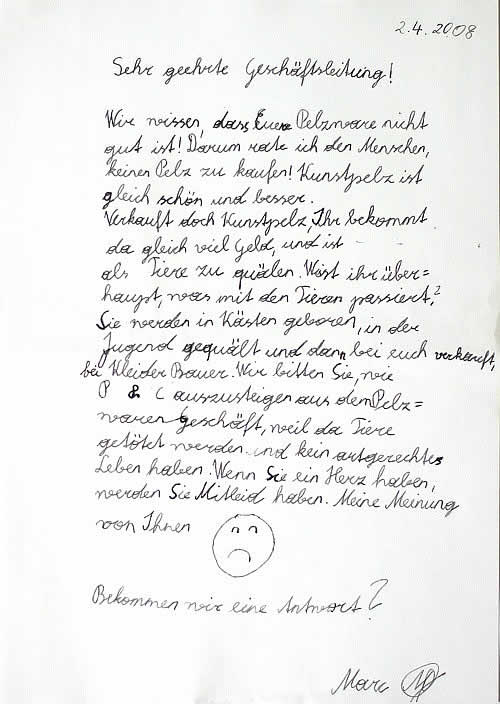 2.4.2008
Sehr geehrte Geschäftsleitung!
Wir wissen, dass Euere Pelzware nicht
gut ist! Darum rate ich den Menschen,
keinen Pelz zu kaufen! Kunstpelz ist
gleich schön und besser.
Verkauft doch Kunstpelz, Ihr bekommt
da gleich viel Geld, und ist
als Tiere zu quälen. Wisst ihr über=
haupt, was mit den Tieren passiert?
Sie werden in Kästen geboren, in der
Jugend gequält und dann bei euch verkauft,
bei Kleider Bauer. Wir bitten Sie, wie
P & C auszusteigen aus dem Pelz=
waren Geschäft, weil da Tiere
getötet werden und kein artgerechtes
Leben haben. Wenn Sie ein Herz haben,
werden Sie Mitleid haben. Meine Meinung
von Ihnen
Bekommen wir eine Antwort?
Marc